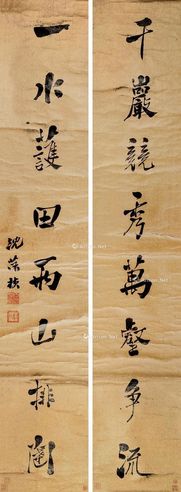 千巖競秀萬壑爭流
一水護田兩山排闥
沈荃